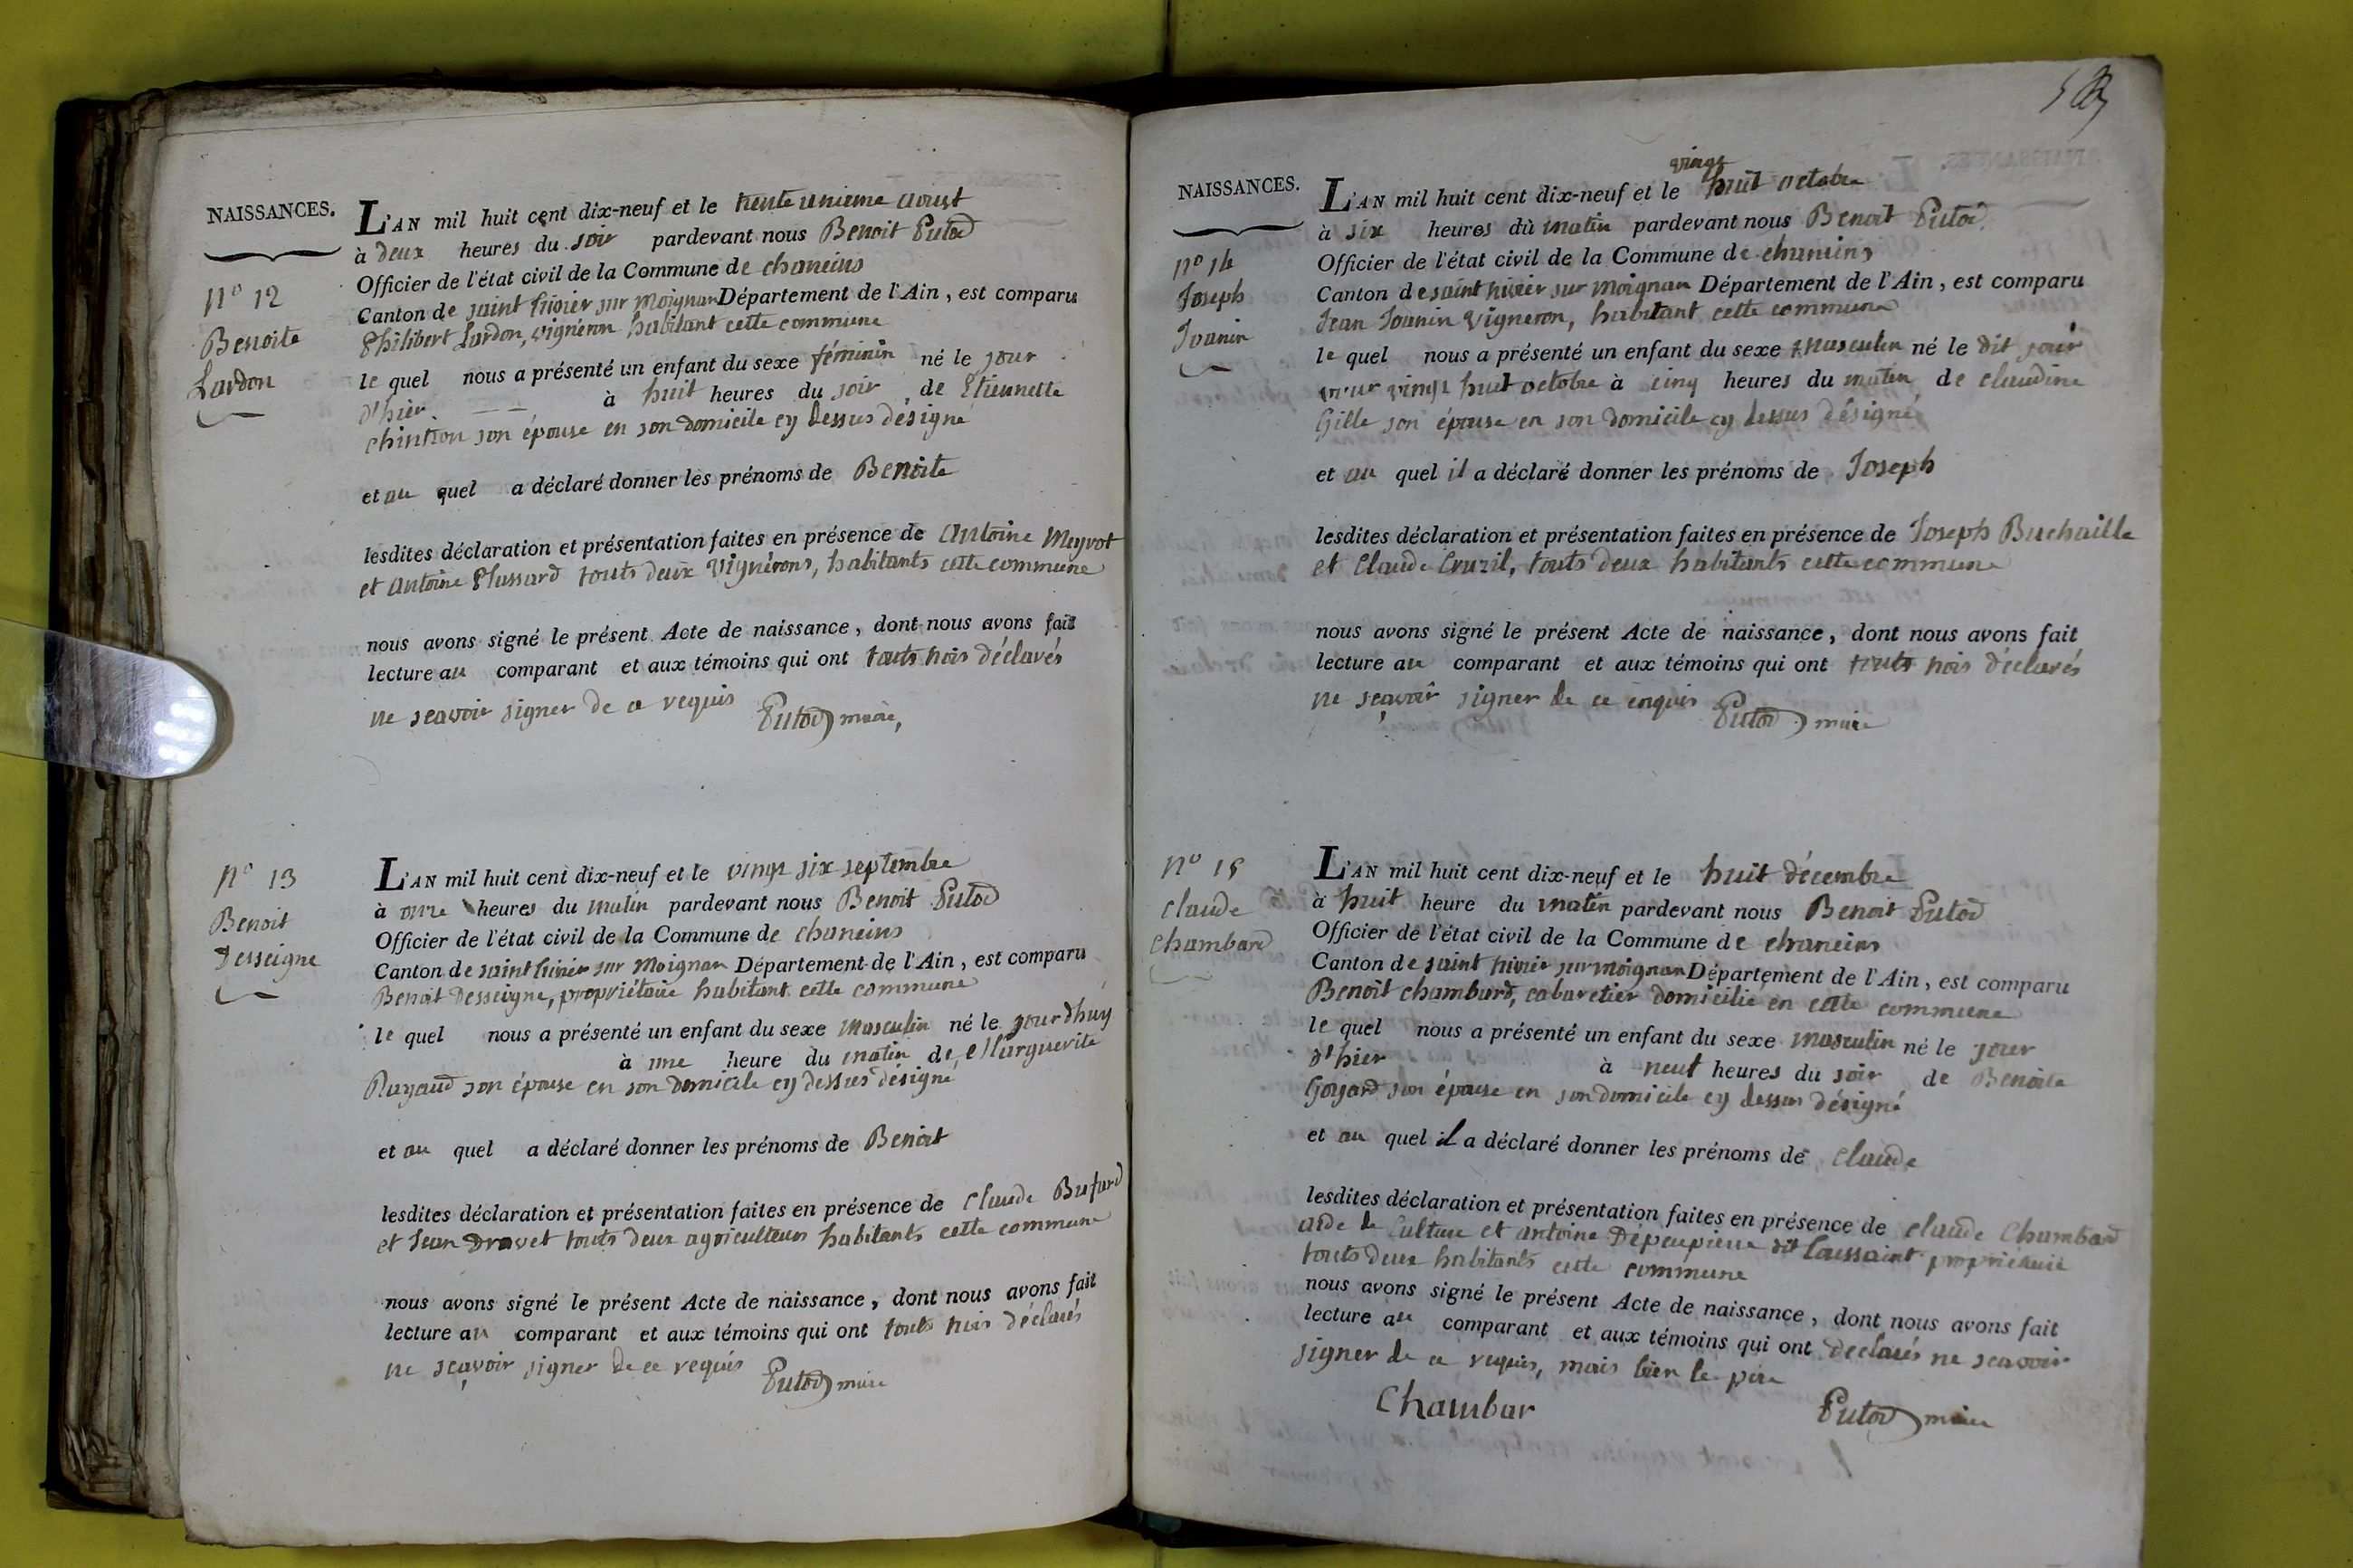 NAISSANCES.
L'AN mil huit cent dix-neuf et le trente unieme aoust
à deux heures du soir pardevant nous Benoit Putod
Officier de l'état civil de la Commune de chaneins
Canton de saint trivier sur moignan Département de l'Ain, est comparu
Philibert Lardon, vigneron habitant cette commune
le quel nous a présenté un enfant du sexe féminin né le jour
d'hier à huit heures du soir de Etiennette
son épouse en son domicile cy dessus désigné
et au quel a déclaré donner les prénoms de Benoite
lesdites déclaration et présentation faites en présence de antoine
et antoine Plassard touts deux vignerons, habitants cette commune
nous avons signé le présent Acte de naissance, dont nous avons fait
lecture au comparant et aux témoins qui ont touts trois déclarés
ne scavoir signer de ce requis
Putod maire,
n° 12
Benoite
Lardon
n° 13
Benoit
Desseigne
L'AN mil huit cent dix-neuf et le vingt six septembre
à onze heures du matin pardevant nous Benoit Putod
Officier de l'état civil de la Commune de chaneins
Canton de saint trivier sur moignan Département de l'Ain, est comparu
Benoit Desseigne, propriétaire habitant cette commune
le quel nous a présenté un enfant du sexe masculin né le jourdhuy
à une heure du matin de Marguerite
son épouse en son domicile cy dessus désigné
et au quel a déclaré donner les prénoms de Benoit
lesdites déclaration et présentation faites en présence de Claude
et Jean Dravet touts deux agriculteurs habitants cette commune
nous avons signé le présent Acte de naissance, dont nous avons fait
lecture au comparant et aux témoins qui ont touts trois déclarés
ne sçavoir signer de ce requis
Putod maire
NAISSANCES.
n° 14
Joseph
Jounin
vingt
L'AN mil huit cent dix-neuf et le huit octobre
à six heures du matin pardevant nous Benoit Putod
Officier de l'état civil de la Commune de chaneins
Canton de saint trivier sur moignan Département de l'Ain, est comparu
Jean Jounin vigneron, habitant cette commune
le quel nous a présenté un enfant du sexe masculin né le dit jour
vingt huit octobre à cinq heures du matin de claudine
Gille son épouse en son domicile cy dessus désigné
et au quel il a déclaré donner les prénoms de Joseph
lesdites déclaration et présentation faites en présence de Joseph Buchaille
et Claude Cruzil, touts deux habitants cette commune
nous avons signé le présent Acte de naissance, dont nous avons fait
lecture au comparant et aux témoins qui ont touts trois déclarés
ne sçavoir signer de ce enquis
Putod maire
n° 15
claude
chambard
L'AN mil huit cent dix-neuf et le huit décembre
à huit heure du matin pardevant nous Benoit Putod
Officier de l'état civil de la Commune de chaneins
Canton de saint trivier sur moignan Département de l'Ain, est comparu
Benoit chambard, cabaretier domicilié en cette commune
le quel nous a présenté un enfant du sexe masculin né le jour
d'hier à neuf heures du soir de Benoite
Goyard son épouse en son domicile cy dessus désigné
et au quel il a déclaré donner les prénoms de claude
lesdites déclaration et présentation faites en présence de claude Chambard
aide de culture et antoine dit Toussaint propriétaire
touts deux habitants cette commune
nous avons signé le présent Acte de naissance, dont nous avons fait
lecture au comparant et aux témoins qui ont declarés ne scavoir
signer de ce requis, mais bien le père
Chambar
Putod maire